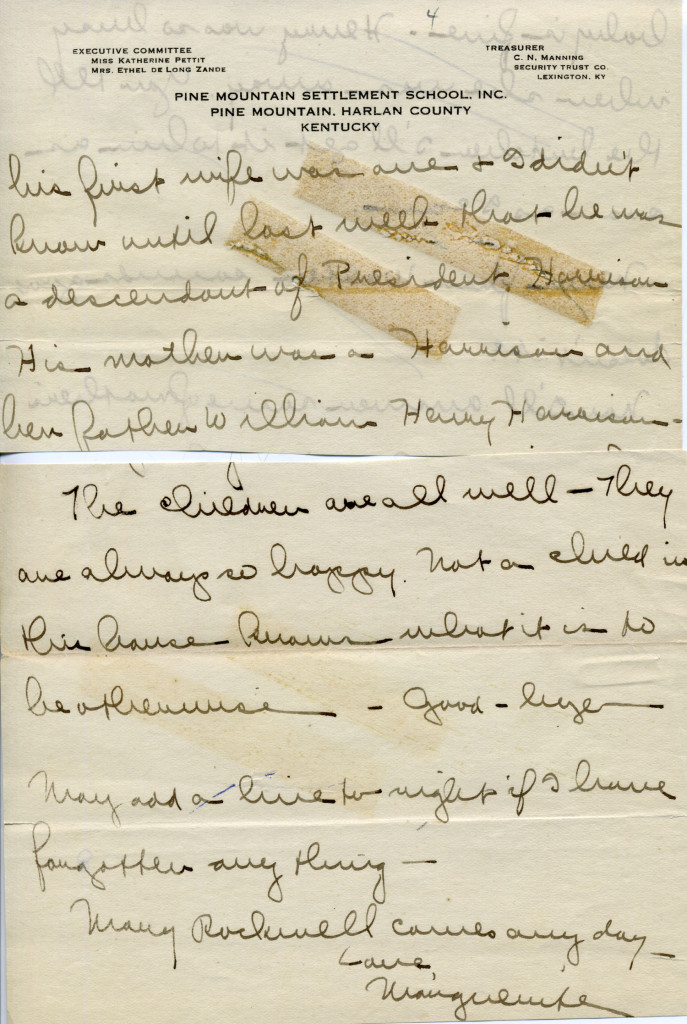 4
EXECUTIVE COMMITTEE
MISS KATHERINE PETTIT
MRS. ETHEL DE LONG ZANDE
TREASURER
C. N. MANNING
SECURITY TRUST CO.
LEXINGTON, KY
PINE MOUNTAIN SETTLEMENT SCHOOL, INC.
PINE MOUNTAIN, HARLAN COUNTY
KENTUCKY
his first wife was one & I didn't
know until last week that he was
a descendant of President Harrison
His mother was a Harrison and
her father William Henry Harrison -
The children are all well - They
are always so happy. Not a child in
this house knows what it is to
be otherwise - Good-bye
May add a line to night if I have
forgotten any thing -
Mary Rockwell comes any day -
Love
Marguerite